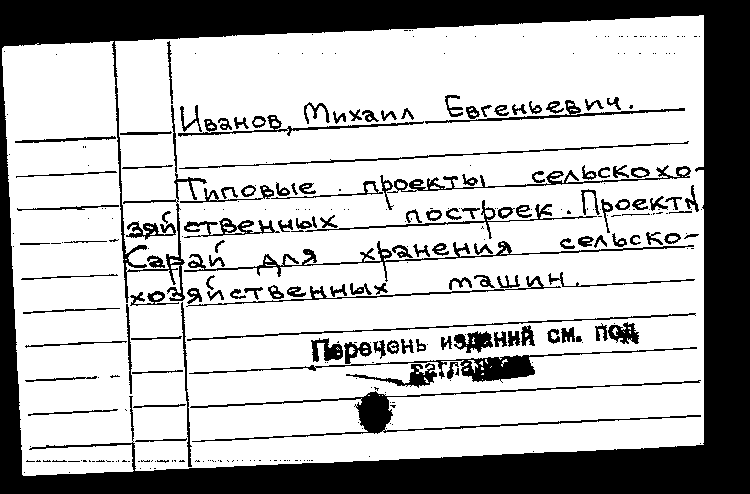 Иванов, Михаил Евгеньевич.
Типовые проекты сельскохо-
зяйственных построек. Проект №
Сарай для хранения сельско-
хозяйственных машин.
Перечень изданий см. под
заглавием